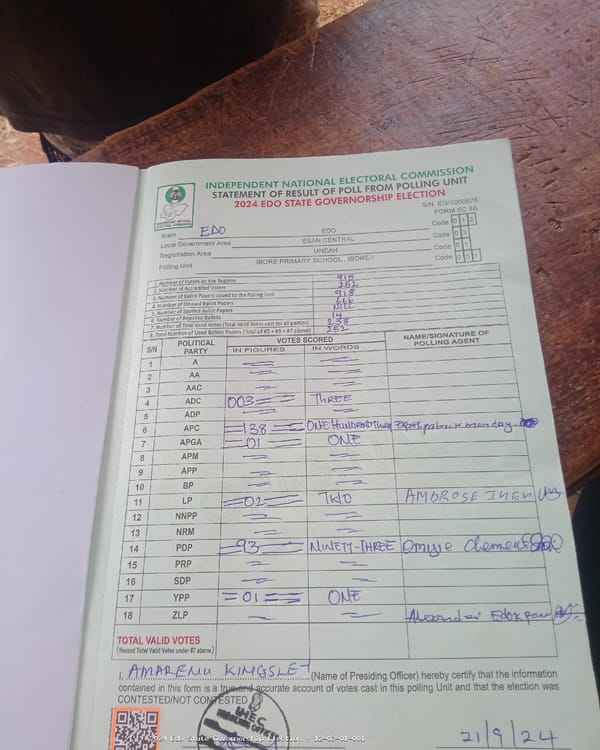 INDEPENDENT NATIONAL ELECTORAL COMMISSION
STATEMENT OF RESULT OF POLL FROM POLLING UNIT
2024 EDO STATE GOVERNORSHIP ELECTION
S/N EG/0000678
FORM EC 8A
State EDO EDO Code 0 1 2
Local Government Area ESAN CENTRAL Code 0 3
Registration Area UNEAH Code 0 1
Polling Unit IBORE PRIMARY SCHOOL , IBORE-I Code 0 0 1
1. Number of Voters on the Register 918
2. Number of Accredited Voters 252
3. Number of Ballot Papers Issued to the Polling Unit 918
4. Number of Unused Ballot Papers 666
5. Number of Spoiled Ballot Papers
6. Number of Rejected Ballots 14
7. Number of Total Valid Votes (Total Valid Votes cast for all parties) 238
8. Total Number of Used Ballots Papers (Total of #5 + #6 + #7 above) 252
S/N POLITICAL PARTY VOTES SCORED NAME/SIGNATURE OF POLLING AGENT
IN FIGURES IN WORDS
1 A
2 AA
3 AAC
4 ADC 003 THREE
5 ADP
6 APC 138 ONE HUNDRED monday
7 APGA 01 ONE
8 APM
9 APP
10 BP
11 LP 02 TWO AMBROSE
12 NNPP
13 NRM
14 PDP 93 NINETY-THREE Clement
15 PRP
16 SDP
17 YPP 01 ONE
18 ZLP
TOTAL VALID VOTES
(Record Total Valid Votes under #7 above)
I, AMARENU KINGSLEY (Name of Presiding Officer) hereby certify that the information
contained in this form is a true and accurate account of votes cast in this polling Unit and that the election was
CONTESTED/NOT CONTESTED
INEC
2024 Edo State Governorship Election - 12-03-01-001
21/9/24